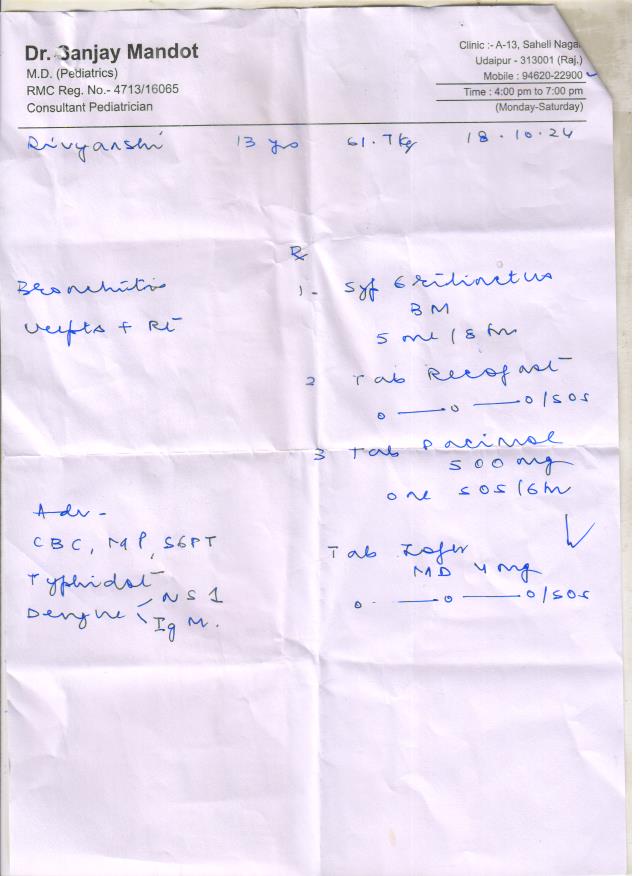 Dr. Sanjay Mandot
M.D. (Pediatrics)
RMC Reg. No.- 4713/16065
Consultant Pediatrician
Clinic :- A-13, Saheli Nagar
Udaipur - 313001 (Raj.)
Mobile : 94620-22900
Time : 4:00 pm to 7:00 pm
(Monday-Saturday)
Rivyanshi 13 yrs 61.7kg 18.10.24
Rx
Bronchitis
1- Syp Grilinctus
BM
5 ml / 8 hr
2 Tab Recofast
0 — 0 — 0 / SOS
3 Tab Pacimol
500 mg
one SOS / 6 hr
Tab Zofer
MD 4 mg
0 — 0 — 0 / SOS
Adv -
CBC, MP, SGPT
Typhidot
Dengue < NS1
IgM.